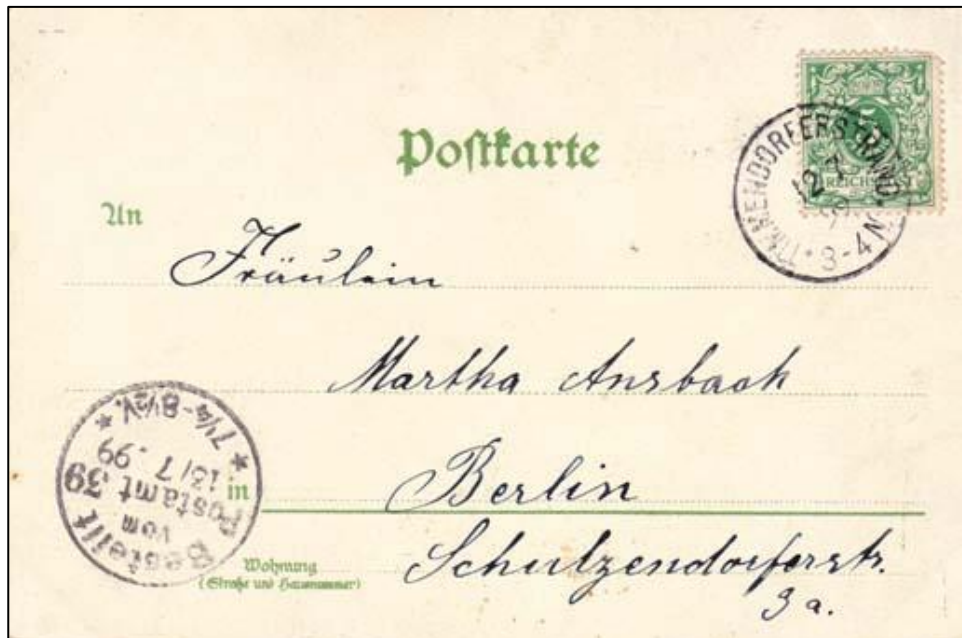 Postkarte
TIMMENDORFERSTRAND
12 7
3-4N.
REICHSPOST
An
Fräulein
Martha Ansbach
in Berlin
Wohnung
(Straße und Hausnummer)
Schulzendorferstr.
3a.
Bestellt
vom
Postamt 39
13/7.99
* 7¼-8½V. *